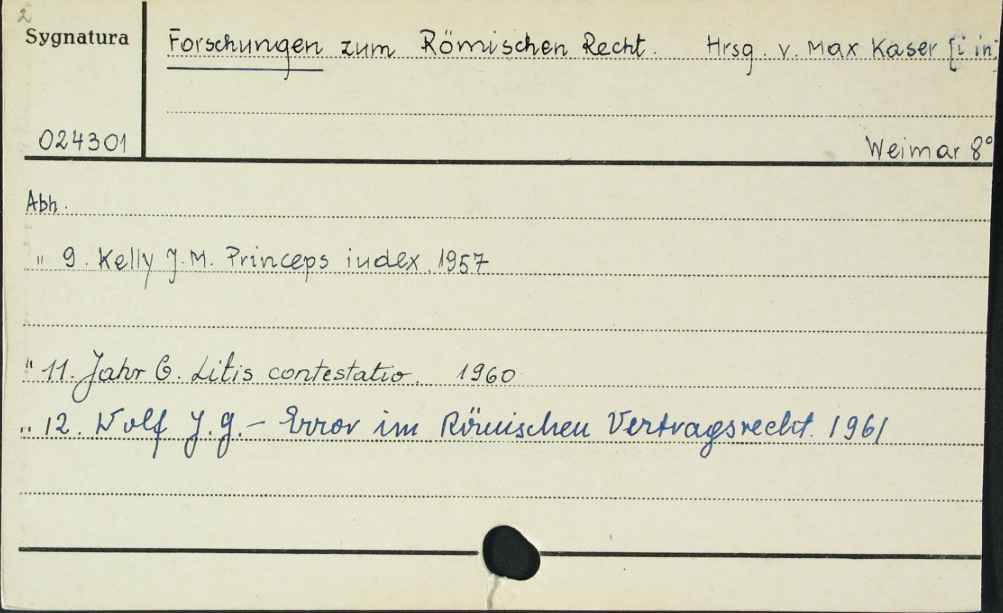 2
Sygnatura
Forschungen zum Römischen Recht. Hrsg. v. Max Kaser [i in
024301
Weimar 8°
Abh.
" 9. Kelly J.M. Princeps iudex. 1957
" 11. Jahr G. Litis contestatio. 1960
" 12. Wolf J.G. – Error im Römischen Vertragsrecht. 1961